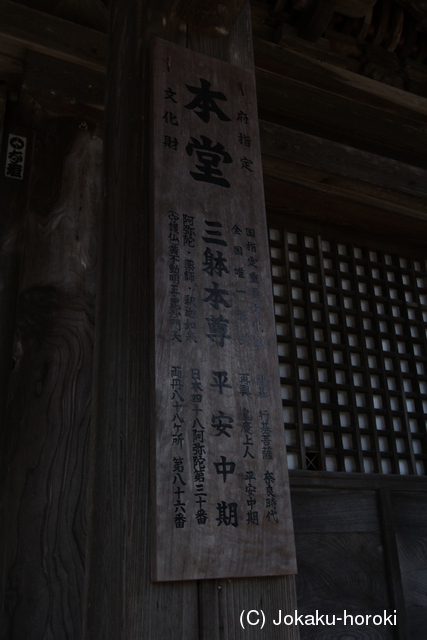 府指定
本堂
文化財
国指定重
全国唯一
三躰本尊 平安中期
阿弥陀・薬師・釈迦如来
日本四十八阿弥陀第三十番
両丹八十八ヶ所 第八十六番
行基菩薩 奈良時代
上人 平安中期
(C) Jokaku-horoki